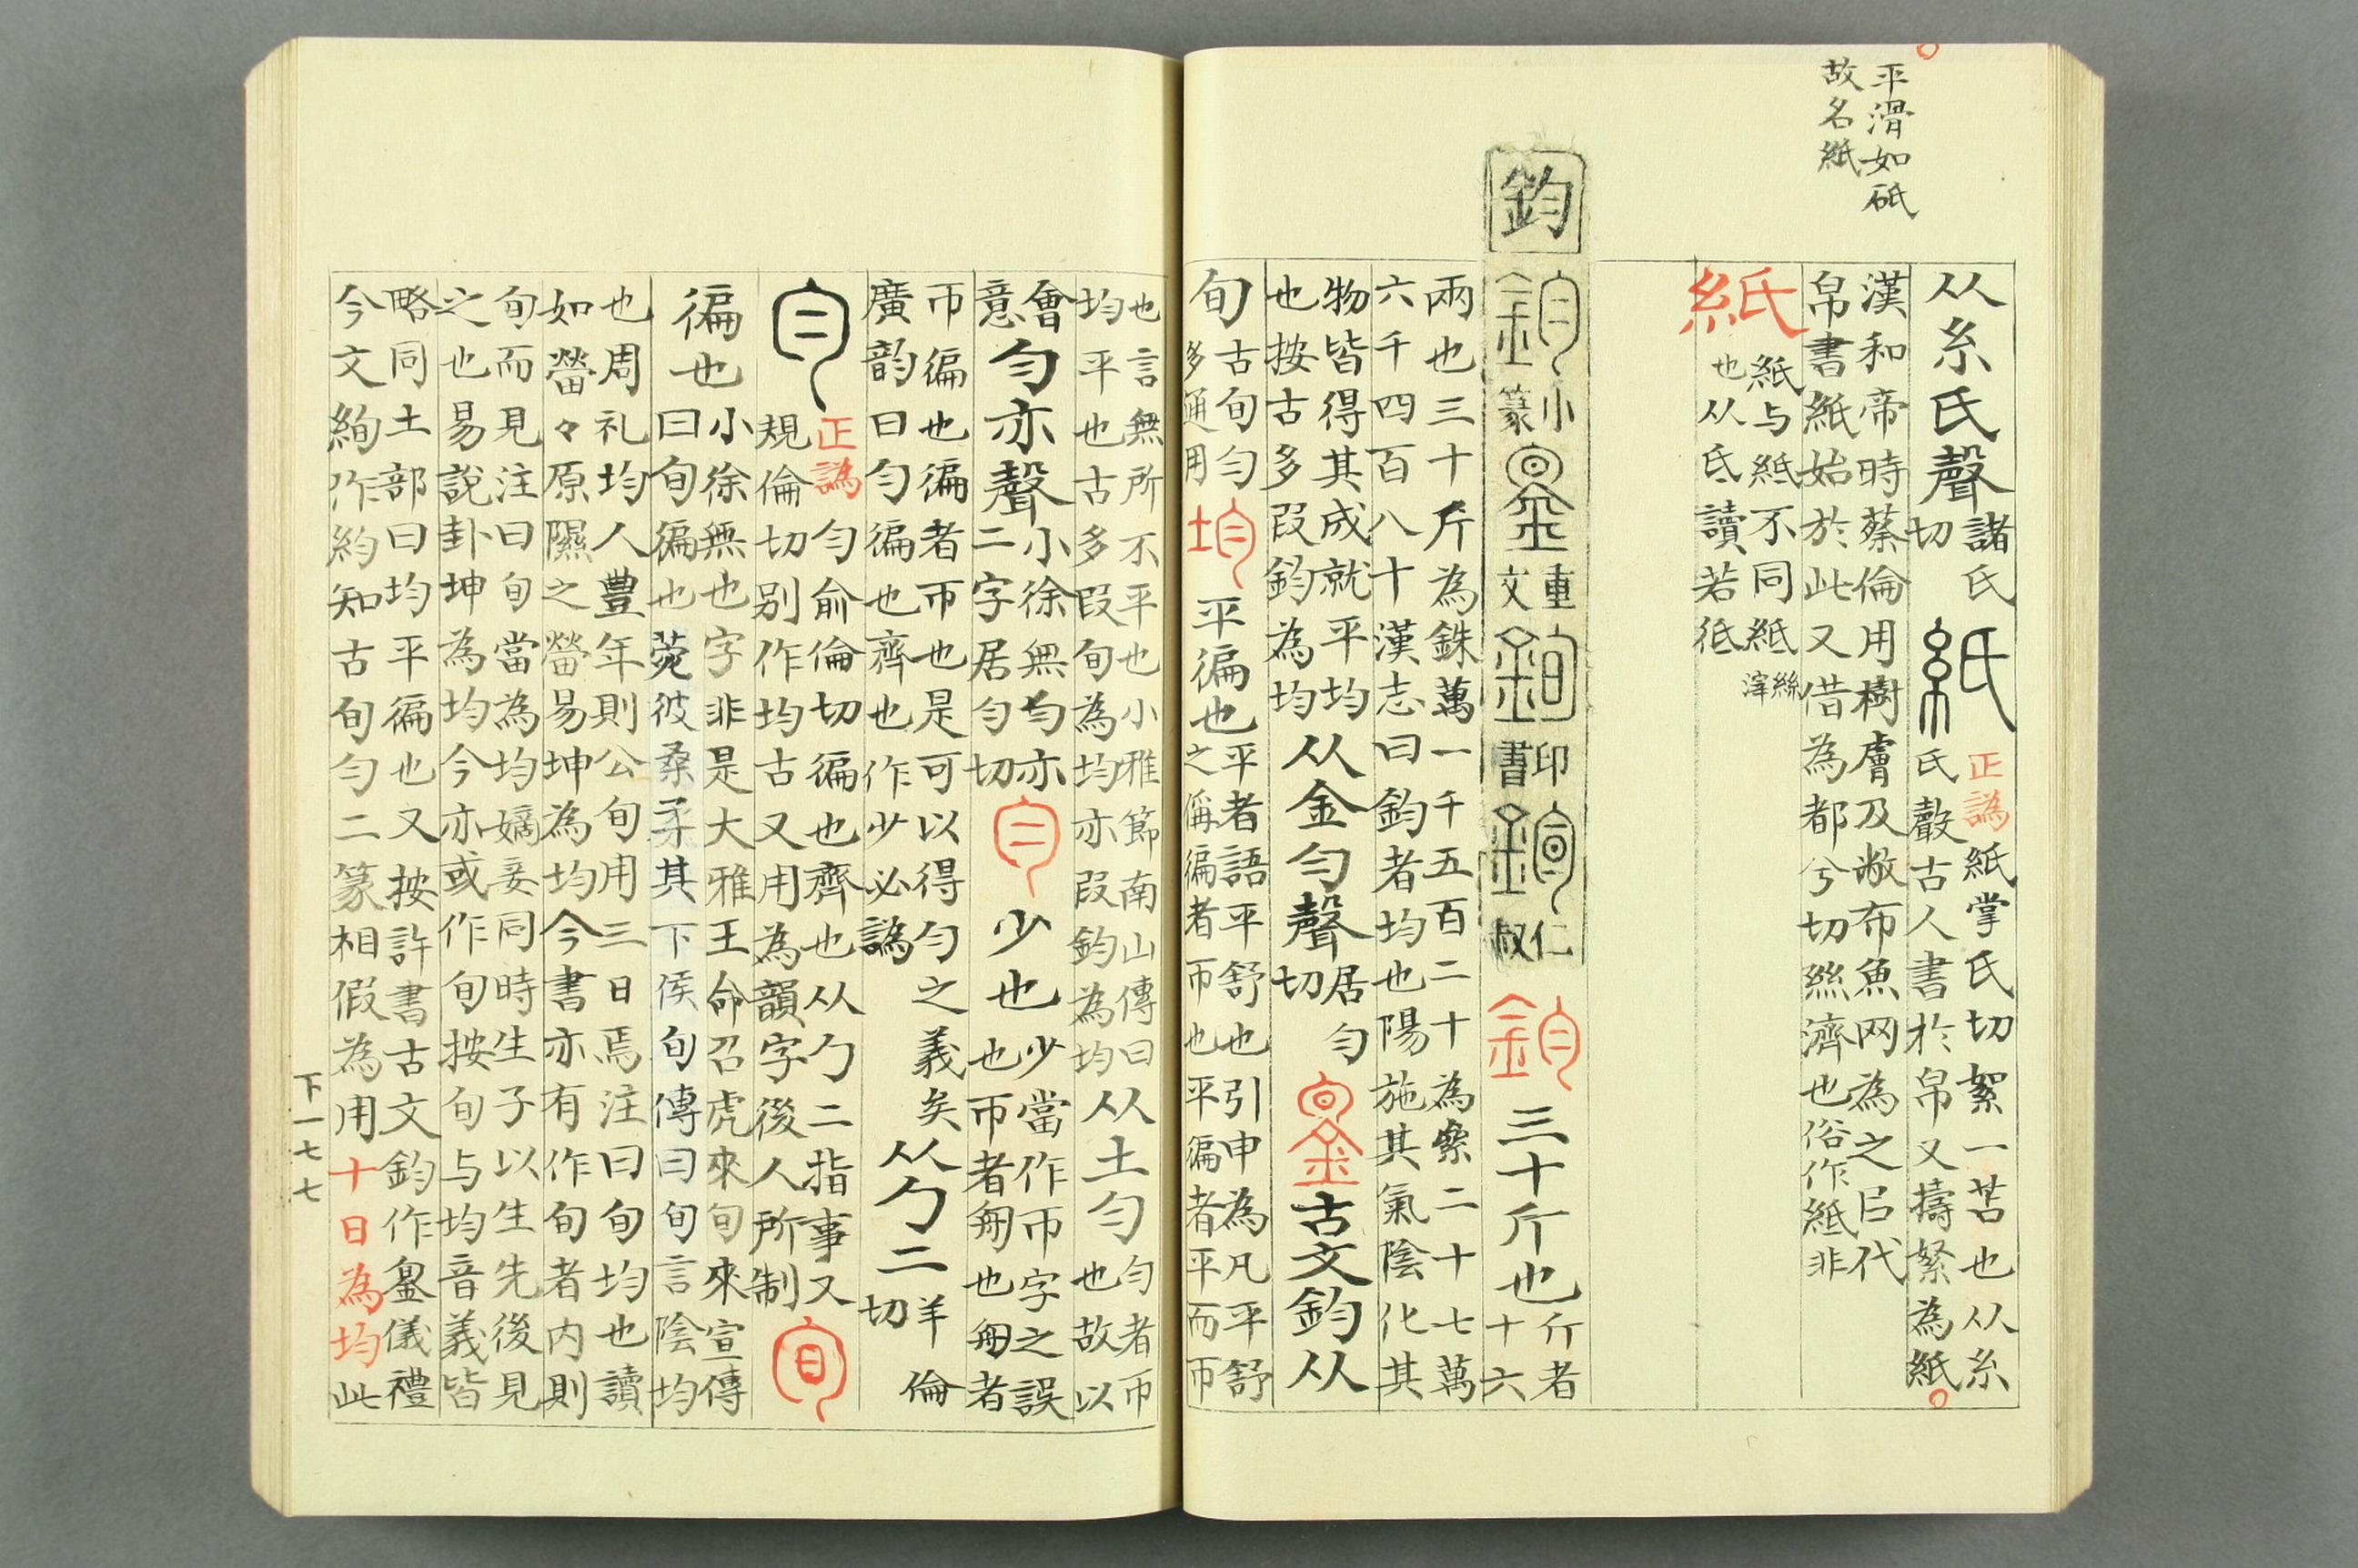 平滑如砥
故名紙
从糸氏聲諸氏切
紙
正譌紙掌氏切絮一苫也从糸
氏聲古人書於帛又擣絮為紙
漢和帝時蔡倫用樹膚及敝布魚网為之㠯代
帛書紙始於此又借為都兮切絲濟也俗作紙非
紙
紙与紙不同紙絲滓
也从氐讀若低
鈞
鈞小篆
重文
印書
仁叔
鈞三十斤也
斤者
十六
兩也三十斤為銖萬一千五百二十為絫二十七萬
六千四百八十漢志曰鈞者均也陽施其氣陰化其
物皆得其成就平均
也按古多叚鈞為均
从金勻聲居勻切
古文鈞从
旬
古旬勻
多通用
均平徧也
平者語平舒也引申為凡平舒
之偁徧者帀也平徧者平而帀
也言無所不平也小雅節南山傳曰
均平也古多叚旬為均亦叚鈞為均
从土勻
勻者帀
也故以
會意勻亦聲
小徐無勻亦
二字居勻切
勻少也
少當作帀字之誤
也帀者匊也匊者
帀徧也徧者帀也是可以得勻之義矣
廣韵曰勻徧也齊也作少必譌
从勹二羊倫切
勻
正譌勻俞倫切徧也齊也从勹二指事又
規倫切别作均古又用為韻字後人所制
旬
徧也
小徐無也字非是大雅王命召虎來旬來宣傳
曰旬徧也菀彼桑柔其下侯旬傳曰旬言陰均
也周礼均人豊年則公旬用三日焉注曰旬均也讀
如螢々原隰之螢易坤為均今書亦有作旬者内則
旬而見注曰旬當為均嫡妾同時生子以生先後見
之也易說卦坤為均今亦或作旬按旬与均音義皆
略同土部曰均平徧也又按許書古文鈞作銞儀禮
今文絢作約知古旬勻二篆相假為用十日為均此
下一七七